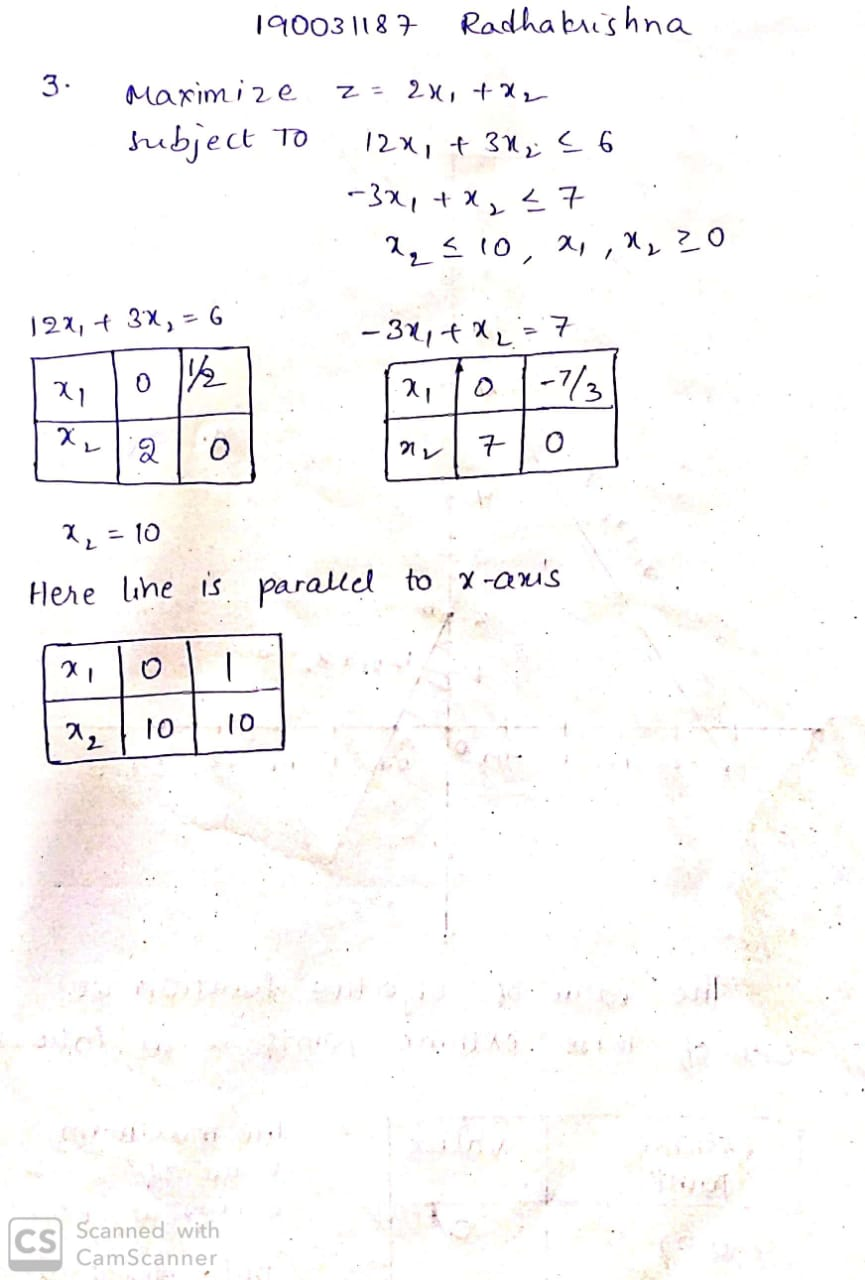 190031187 Radhakrishna
3. Maximize z = 2x₁ + x₂
subject To 12x₁ + 3x₂ ≤ 6
-3x₁ + x₂ ≤ 7
x₂ ≤ 10, x₁, x₂ ≥ 0
12x₁ + 3x₂ = 6
x₁ 0 1/2
x₂ 2 0
-3x₁ + x₂ = 7
x₁ 0 -7/3
x₂ 7 0
x₂ = 10
Here line is parallel to x-axis
x₁ 0 1
x₂ 10 10
CS Scanned with
CamScanner